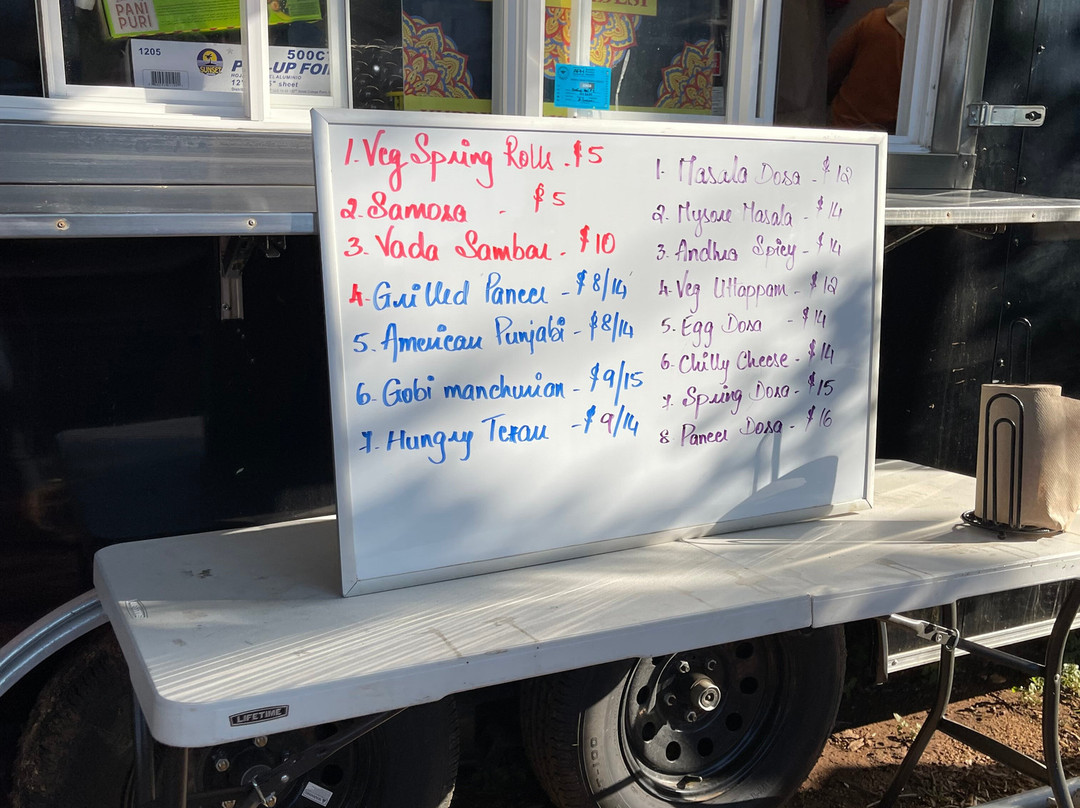 PANI
PURI
1205
500CT
P
-UP FOI
12"
sheet
1. Veg Spring Rolls - $5
2. Samosa - $5
3. Vada Sambar - $10
4. Grilled Paneer - $8/14
5. American Punjabi - $8/14
6. Gobi manchurian - $9/15
7. Hungry Texan - $9/14
1. Masala Dosa - $12
2. Mysore Masala - $14
3. Andhra Spicy - $14
4. Veg Uttappam - $12
5. Egg Dosa - $14
6. Chilly Cheese - $14
7. Spring Dosa - $15
8 Paneer Dosa - $16
LIFETIME